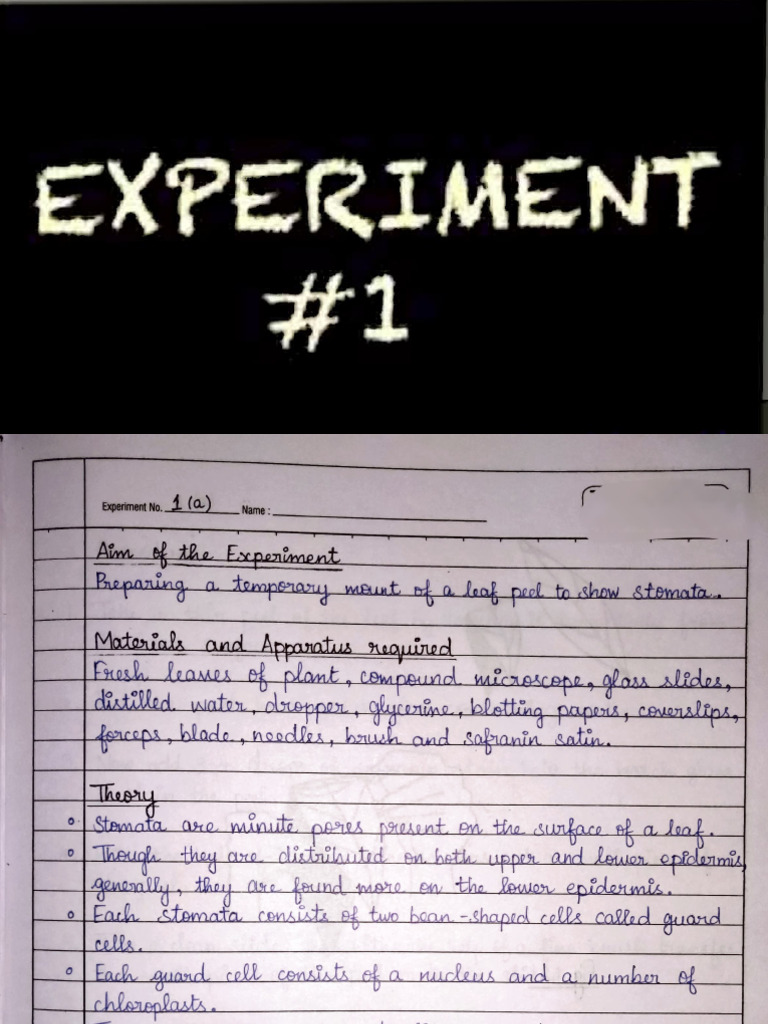 EXPERIMENT
#1
Experiment No. 1 (a) Name :
Aim of the Experiment
Preparing a temporary mount of a leaf peel to show stomata.
Materials and Apparatus required
Fresh leaves of plant, compound microscope, glass slides,
distilled water, dropper, glycerine, blotting papers, coverslips,
forceps, blade, needles, brush and safranin satin.
Theory
Stomata are minute pores present on the surface of a leaf.
Though they are distributed on both upper and lower epidermis,
generally, they are found more on the lower epidermis.
Each stomata consists of two bean-shaped cells called guard
cells.
Each guard cell consists of a nucleus and a number of
chloroplasts.